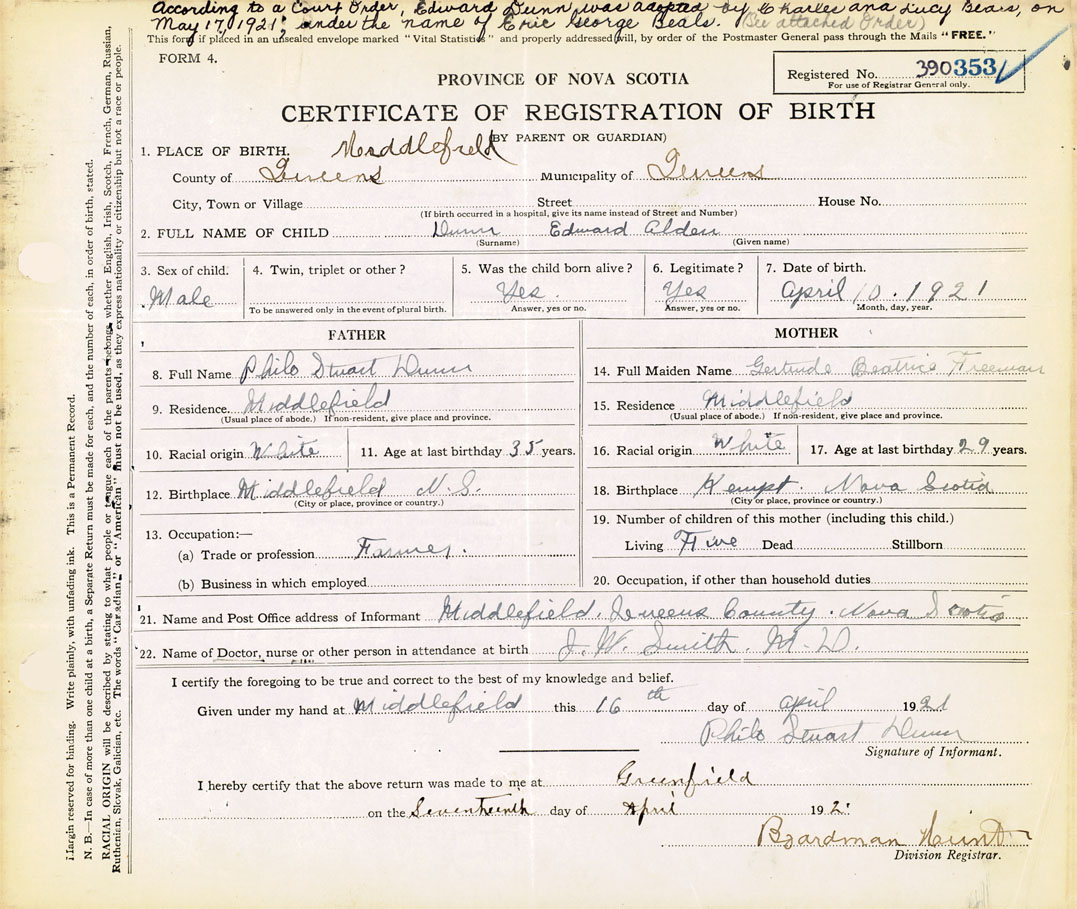 According to a Court Order, Edward Dunn, was adopted by Charles and Lucy Beals, on
May 17, 1921, under the name of Eric George Beals. (See attached Order)
This form if placed in an unsealed envelope marked "Vital Statistics" and properly addressed will, by order of the Postmaster General pass through the Mails "FREE."
FORM 4.
Registered No. 390353
For use of Registrar General only.
PROVINCE OF NOVA SCOTIA
CERTIFICATE OF REGISTRATION OF BIRTH
(BY PARENT OR GUARDIAN)
1. PLACE OF BIRTH. Middlefield
County of Queens Municipality of Queens
City, Town or Village Street House No.
(If birth occurred in a hospital, give its name instead of Street and Number)
2. FULL NAME OF CHILD Dunn Edward Alden
(Surname) (Given name)
3. Sex of child. 4. Twin, triplet or other? 5. Was the child born alive? 6. Legitimate? 7. Date of birth.
Male Yes. Yes April 10. 1921
To be answered only in the event of plural birth. Answer, yes or no. Answer, yes or no. Month, day, year.
FATHER
8. Full Name Philo Stuart Dunn
9. Residence Middlefield
(Usual place of abode.) If non-resident, give place and province.
10. Racial origin White 11. Age at last birthday 35 years.
12. Birthplace Middlefield N.S.
(City or place, province or country.)
13. Occupation:—
(a) Trade or profession Farmer.
(b) Business in which employed
MOTHER
14. Full Maiden Name Gertrude Beatrice Freeman
15. Residence Middlefield
(Usual place of abode.) If non-resident, give place and province.
16. Racial origin White 17. Age at last birthday 29 years.
18. Birthplace Kempt. Nova Scotia
(City or place, province or country.)
19. Number of children of this mother (including this child.)
Living Five Dead Stillborn
20. Occupation, if other than household duties
21. Name and Post Office address of Informant Middlefield. Queens County. Nova Scotia
22. Name of Doctor, nurse or other person in attendance at birth J. W. Smith. M. D.
I certify the foregoing to be true and correct to the best of my knowledge and belief.
Given under my hand at Middlefield this 16th day of April 1921
Philo Stuart Dunn
Signature of Informant.
I hereby certify that the above return was made to me at Greenfield
on the Seventeenth day of April 192
Boardman Hunt
Division Registrar.
Margin reserved for binding. Write plainly, with unfading ink. This is a Permanent Record.
N. B.—In case of more than one child at a birth, a Separate Return must be made for each, and the number of each, in order of birth, stated.
RACIAL ORIGIN will be described by stating to what people or tongue each of the parents belongs, whether English, Irish, Scotch, French, German, Russian,
Ruthenian, Slovak, Galician, etc. The words "Canadian" or "American" must not be used, as they express nationality or citizenship but not a race or people.